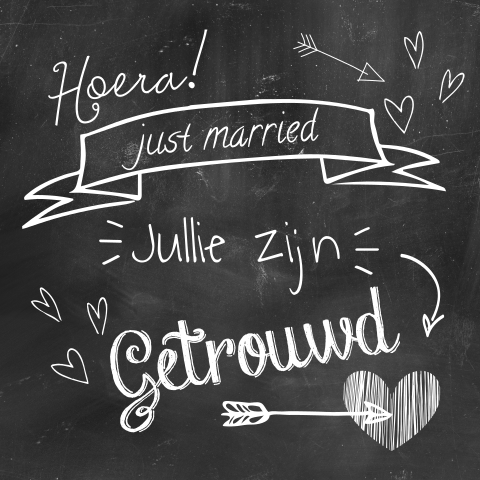 Hoera!
just married
Jullie zijn
Getrouwd